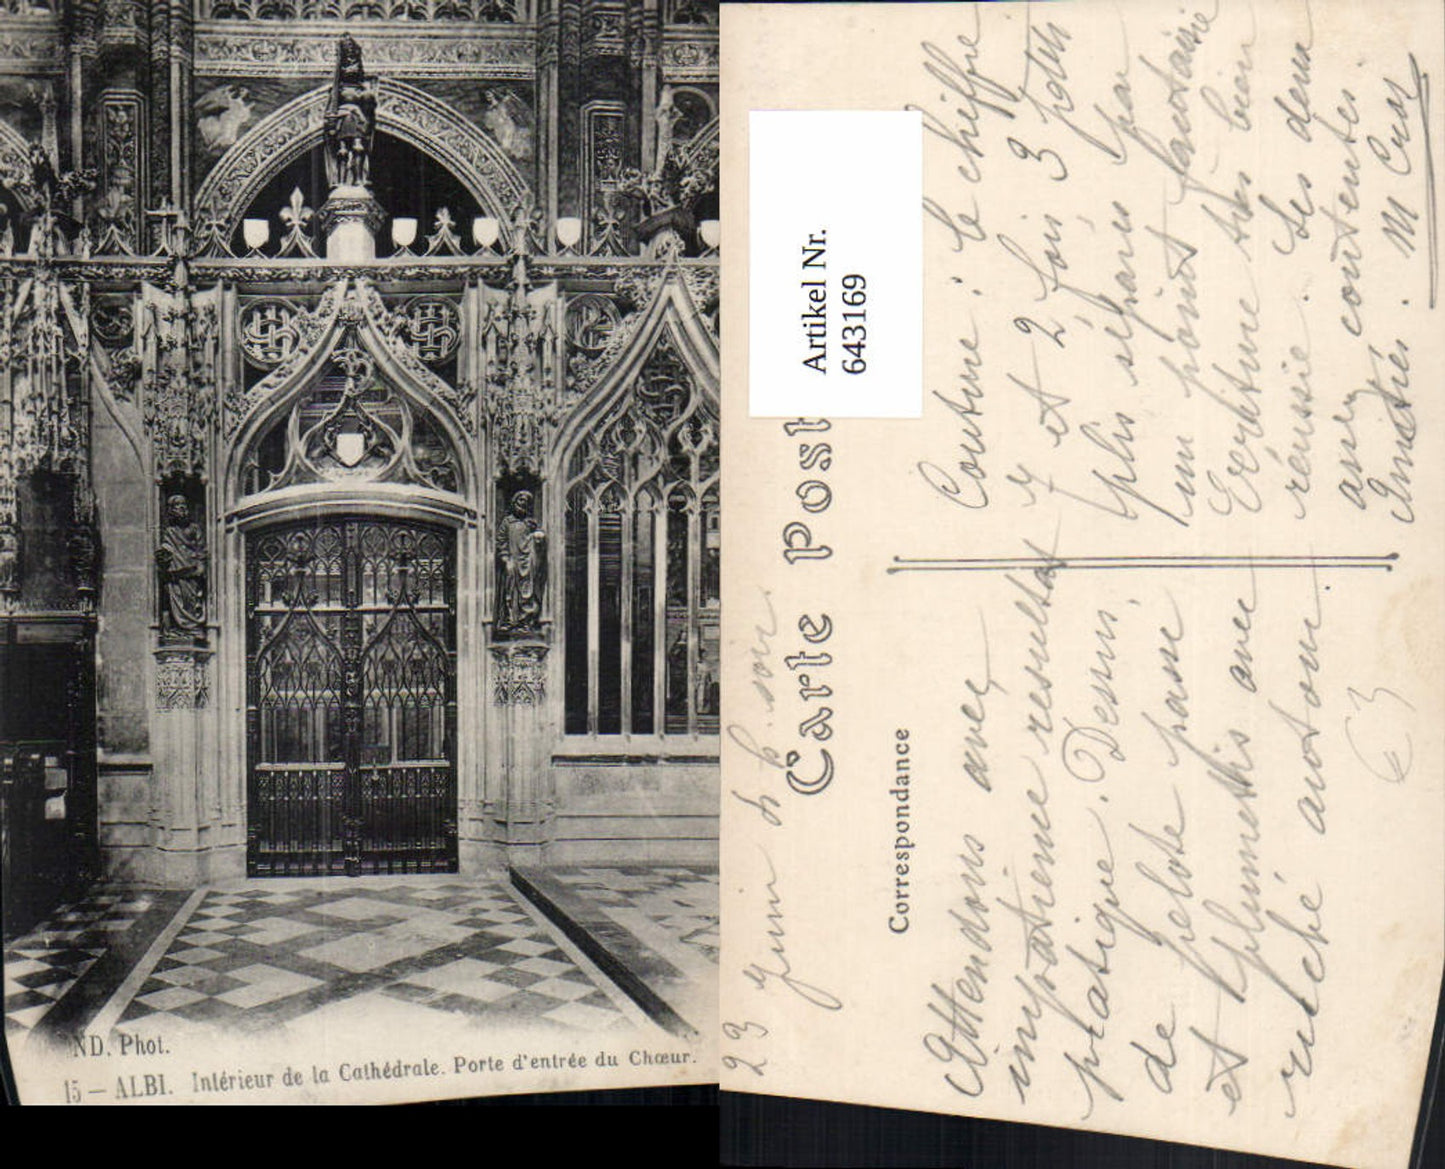 ND. Phot.
15 — ALBI. Intérieur de la Cathédrale. Porte d'entrée du Chœur.
Artikel Nr.
643169
Carte Post
Correspondance
23 Juin h. soir.
Attendons avec
impatience résultat
pratique. Dessin,
de pelote passé
et plumetis avec
ruché autour.
Couture : le chiffre
y est 2 fois, 3 
plis séparés par
un point fantaisie
Ecriture très bien
réussie. Les deux
assez contentes.
Amitiés. M